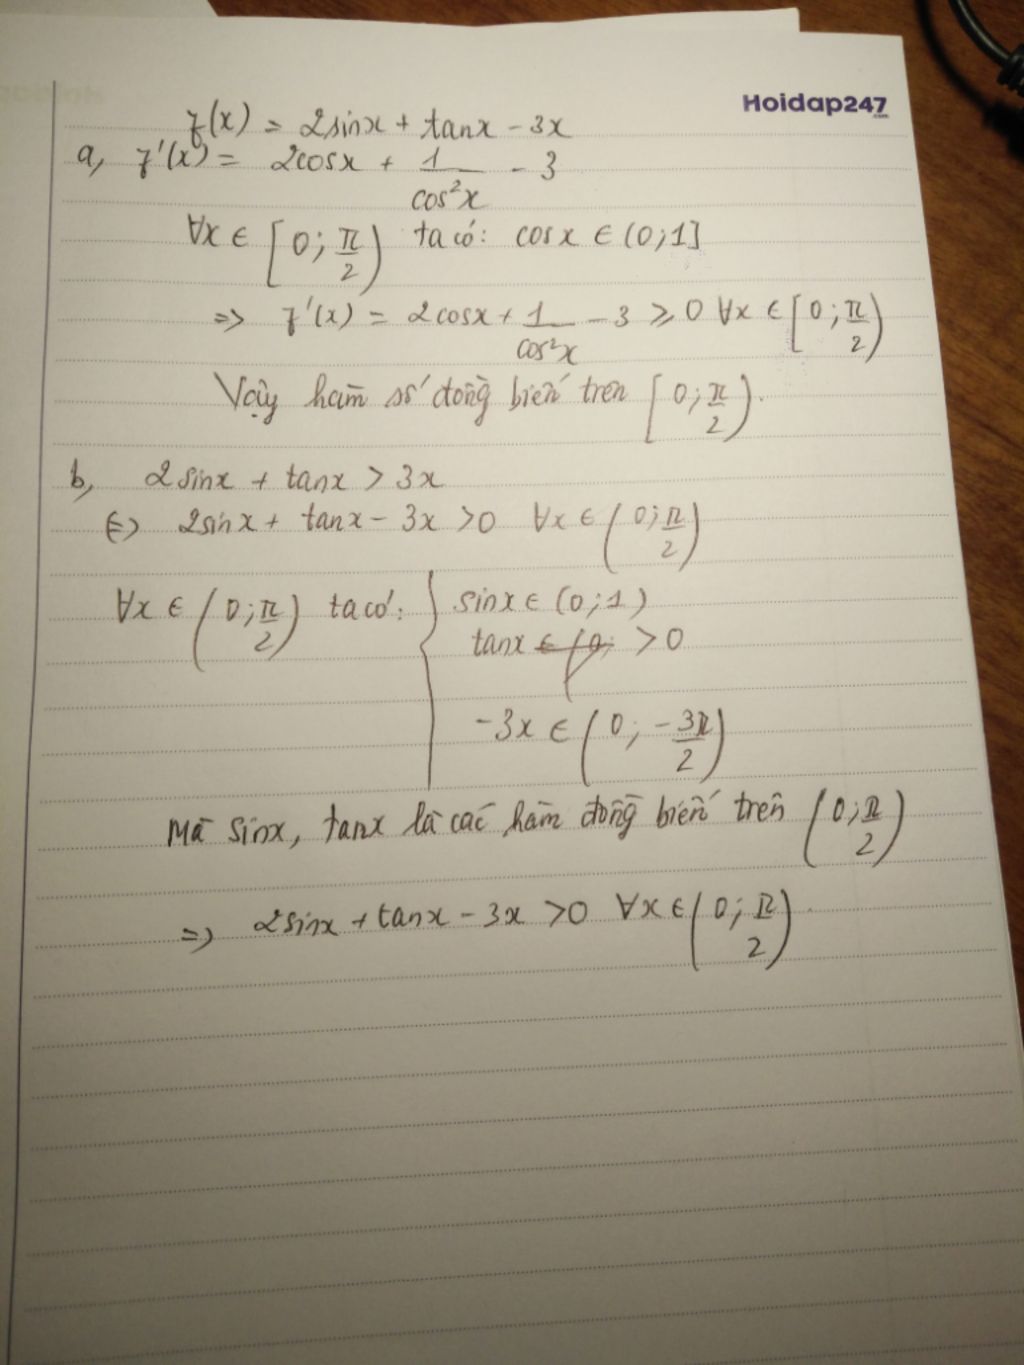 Hoidap247
.com
f(x) = 2sinx + tanx - 3x
a, f'(x) = 2cosx + 1/cos²x - 3
∀x ∈ [0; π/2) ta có: cosx ∈ (0;1]
=> f'(x) = 2cosx + 1/cos²x - 3 ⩾ 0 ∀x ∈ [0; π/2)
Vậy hàm số đồng biến trên [0; π/2).
b, 2sinx + tanx > 3x
(=) 2sinx + tanx - 3x > 0 ∀x ∈ (0; π/2)
∀x ∈ (0; π/2) ta có: { sinx ∈ (0;1)
tanx > 0
-3x ∈ (0; -3π/2)
Mà sinx, tanx là các hàm đồng biến trên (0; π/2)
=> 2sinx + tanx - 3x > 0 ∀x ∈ (0; π/2).